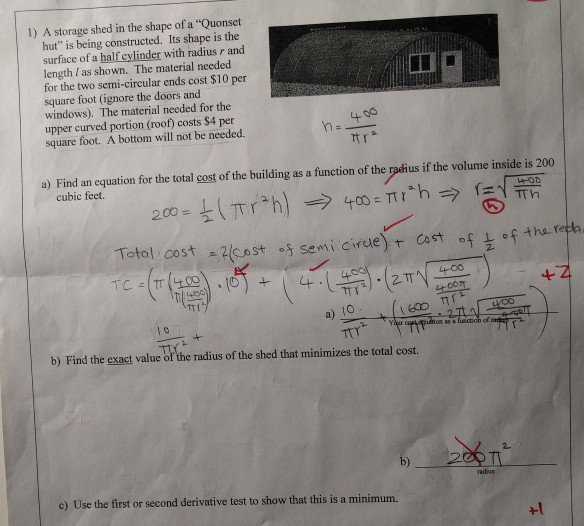 1) A storage shed in the shape of a "Quonset
hut" is being constructed. Its shape is the
surface of a half cylinder with radius r and
length l as shown. The material needed
for the two semi-circular ends cost $10 per
square foot (ignore the doors and
windows). The material needed for the
upper curved portion (roof) costs $4 per
square foot. A bottom will not be needed.
h = 400/πr²
a) Find an equation for the total cost of the building as a function of the radius if the volume inside is 200
cubic feet.
200 = ½(πr²h) ⇒ 400 = πr²h ⇒ r = √(400/πh)
Total cost = 2(cost of semi circle) + cost of ½ of the
TC = (π(400/π(400/πr²))·10) + (4·(400/πr²)·(2π√(400/(400π/πr²)))
+2
a) 10/πr² + (1600/πr² · 2π√
Your cost equation as a function of radius
10/πr² +
b) Find the exact value of the radius of the shed that minimizes the total cost.
b) 200π²
radius
c) Use the first or second derivative test to show that this is a minimum.
+1